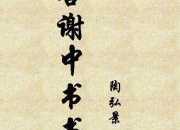 答谢中书书
陶弘景